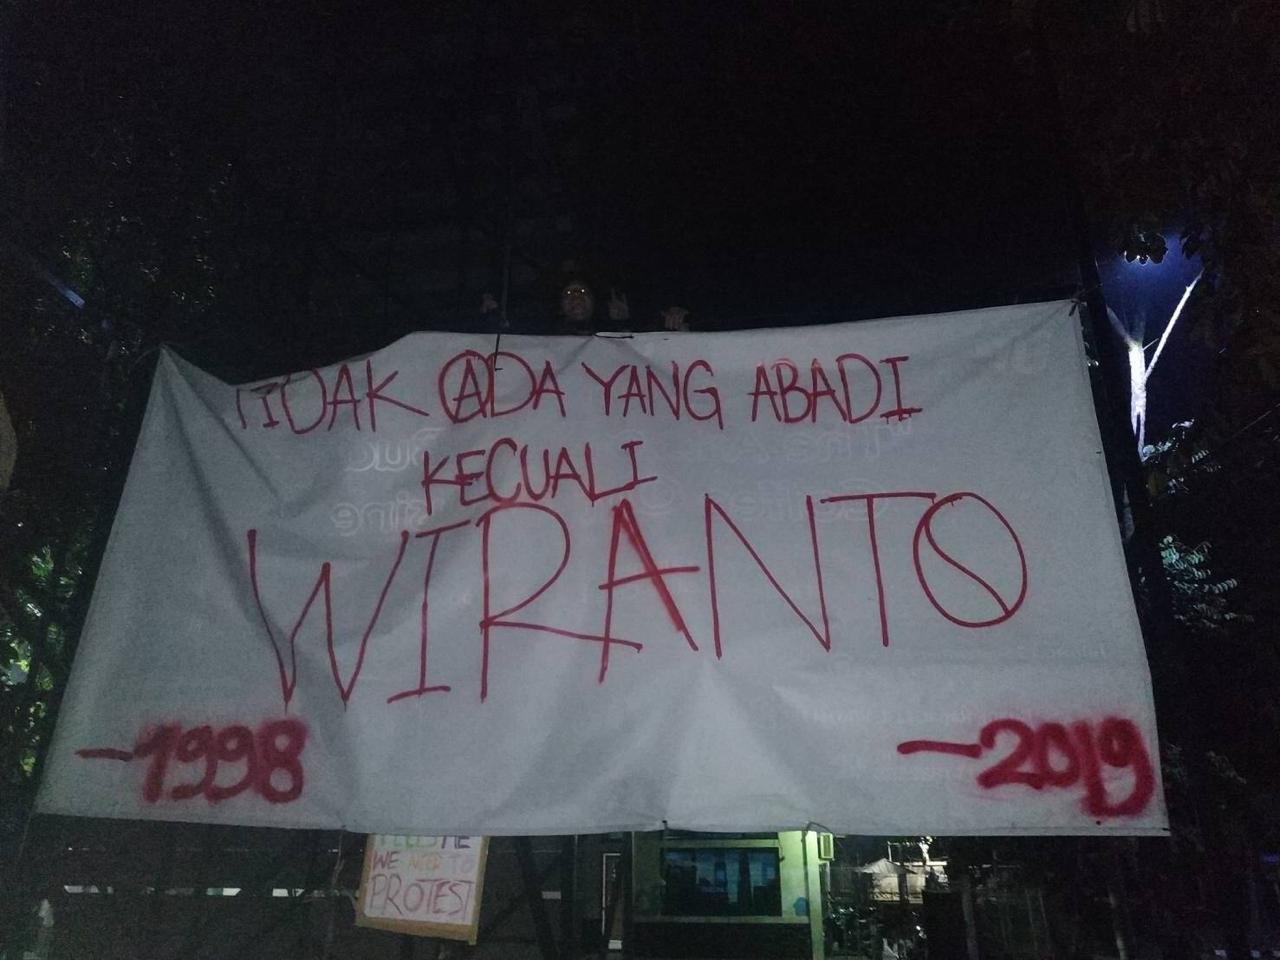 TIDAK ADA YANG ABADI
KECUALI
WIRANTO
-1998
-2019
WE NEED TO
PROTEST